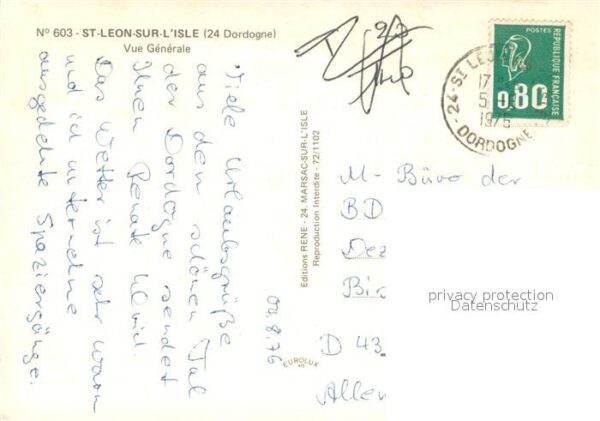 N° 603 - ST-LEON-SUR-L'ISLE (24 Dordogne)
Vue Générale
Viele Urlaubsgrüße
aus dem schönen Tal
der Dordogne sendet
Ihnen Renate
Das Wetter ist sehr warm
und ich unternehme
ausgedehnte Spaziergänge.
02.8.76
Editions RENE - 24. MARSAC-SUR-L'ISLE
Reproduction Interdite - 72/1102
EUROLUX
POSTES
REPUBLIQUE FRANÇAISE
0.80
24 - ST LEON
17
5
1976
DORDOGNE
M - Büro der
BD
Dez
Bir
D 43
Allem
privacy protection
Datenschutz